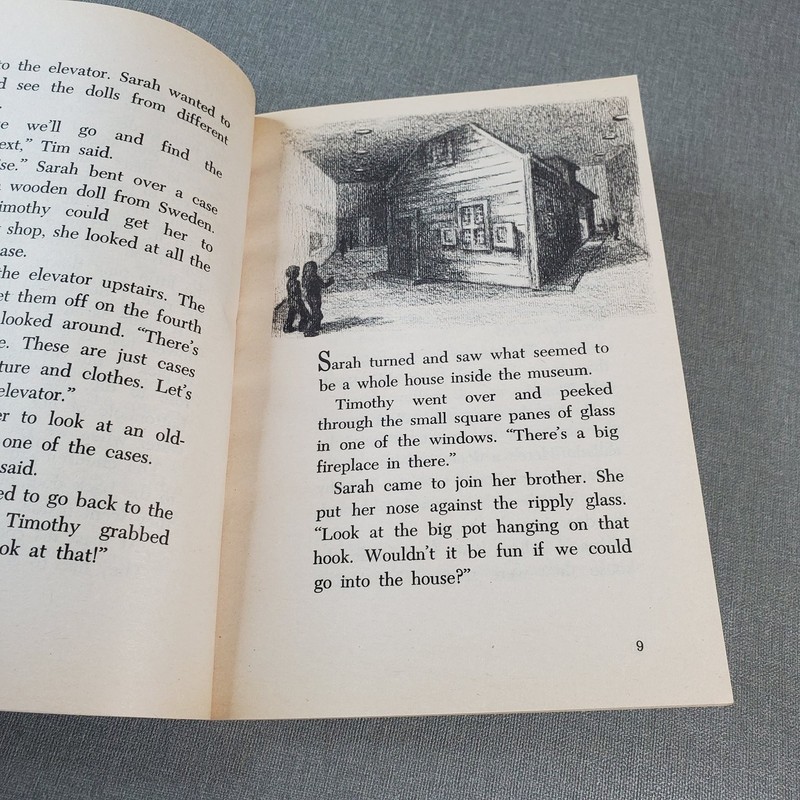 to the elevator. Sarah wanted to
see the dolls from different
we'll go and find the
Tim said.
Sarah bent over a case
wooden doll from Sweden.
could get her to
shop, she looked at all the
the elevator upstairs. The
them off on the fourth
looked around. “There's
These are just cases
and clothes. Let's
elevator.”
to look at an old-
one of the cases.
said.
to go back to the
Timothy grabbed
at that!”
Sarah turned and saw what seemed to
be a whole house inside the museum.
Timothy went over and peeked
through the small square panes of glass
in one of the windows. “There's a big
fireplace in there.”
Sarah came to join her brother. She
put her nose against the ripply glass.
“Look at the big pot hanging on that
hook. Wouldn't it be fun if we could
go into the house?”
9